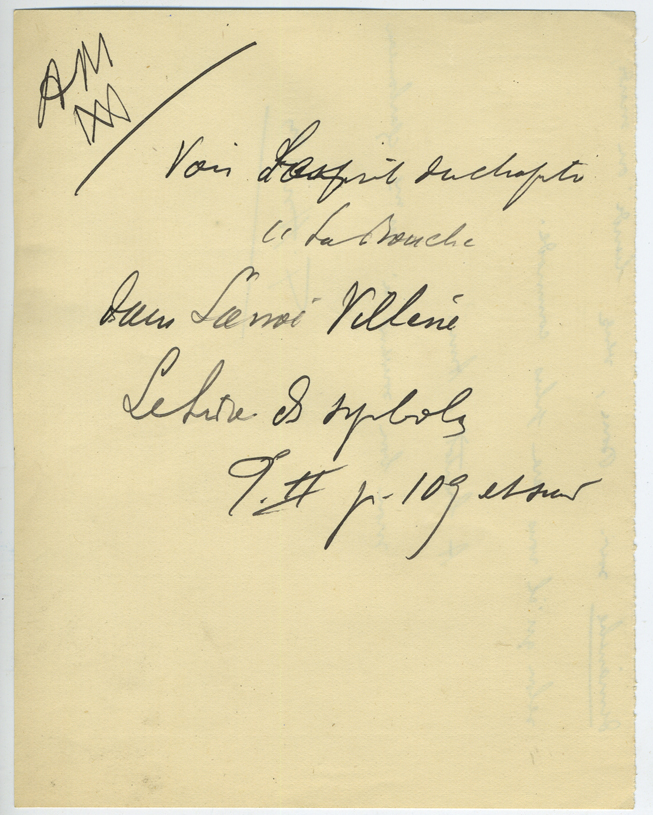 AM
XX
Voir L'esprit du chapitre
" La Bouche
dans Villené
Le Livre ds symboles
T. II p. 109 et suiv